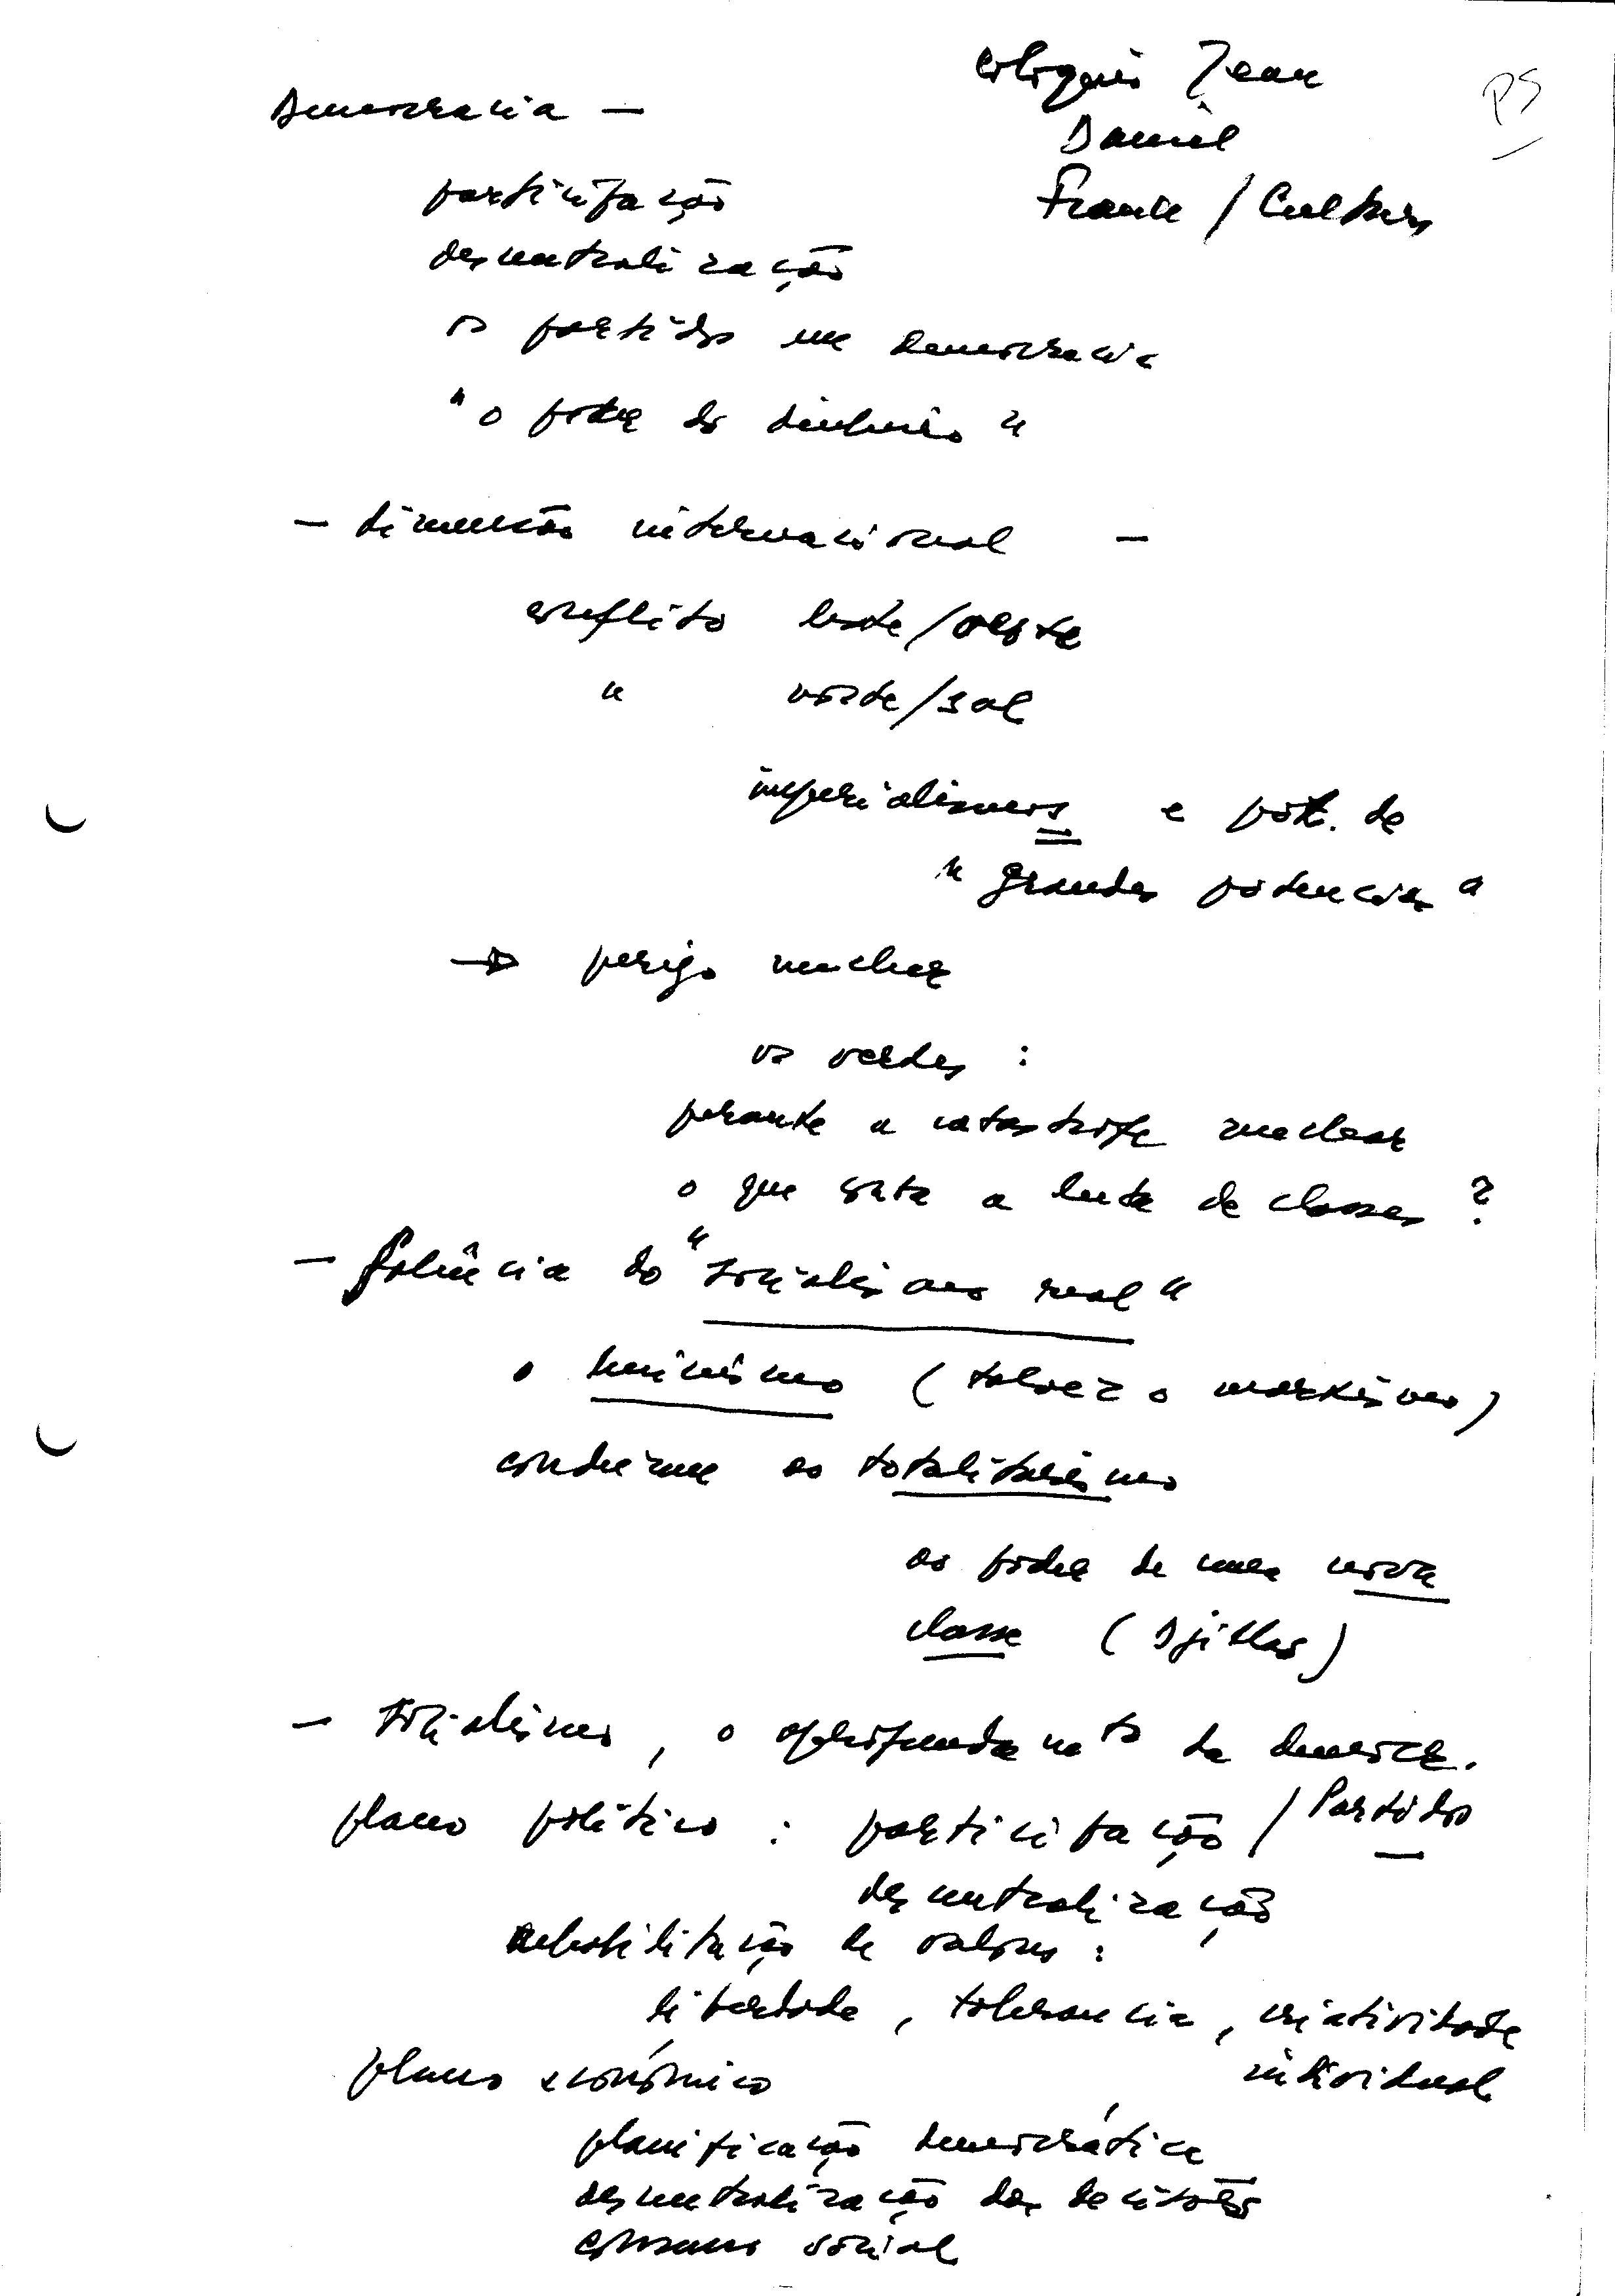 colóquio Jean
Daniel
France / Culture
PS
Democracia —
participação
descentralização
os partidos na democracia
"o poder do dinheiro"
— dimensão internacional —
conflito leste/oeste
" norte/sul
imperialismos e pot. de
"grandes potencias"
→ perigo nuclear
os verdes :
perante a catastrofe nuclear
o que conta a luta de classes ?
— falência do "socialismo real"
o leninismo (talvez o marxismo)
conduziu ao totalitarismo
ao poder de uma nova
classe (Djilas)
— socialismo, o aprofundamto da democr.
plano político : participação / Partidos
descentralização
rehabilitação de valores :
liberdade, tolerancia, criatividade
individual
plano económico
planificação democrática
descentralização das decisões
consenso social